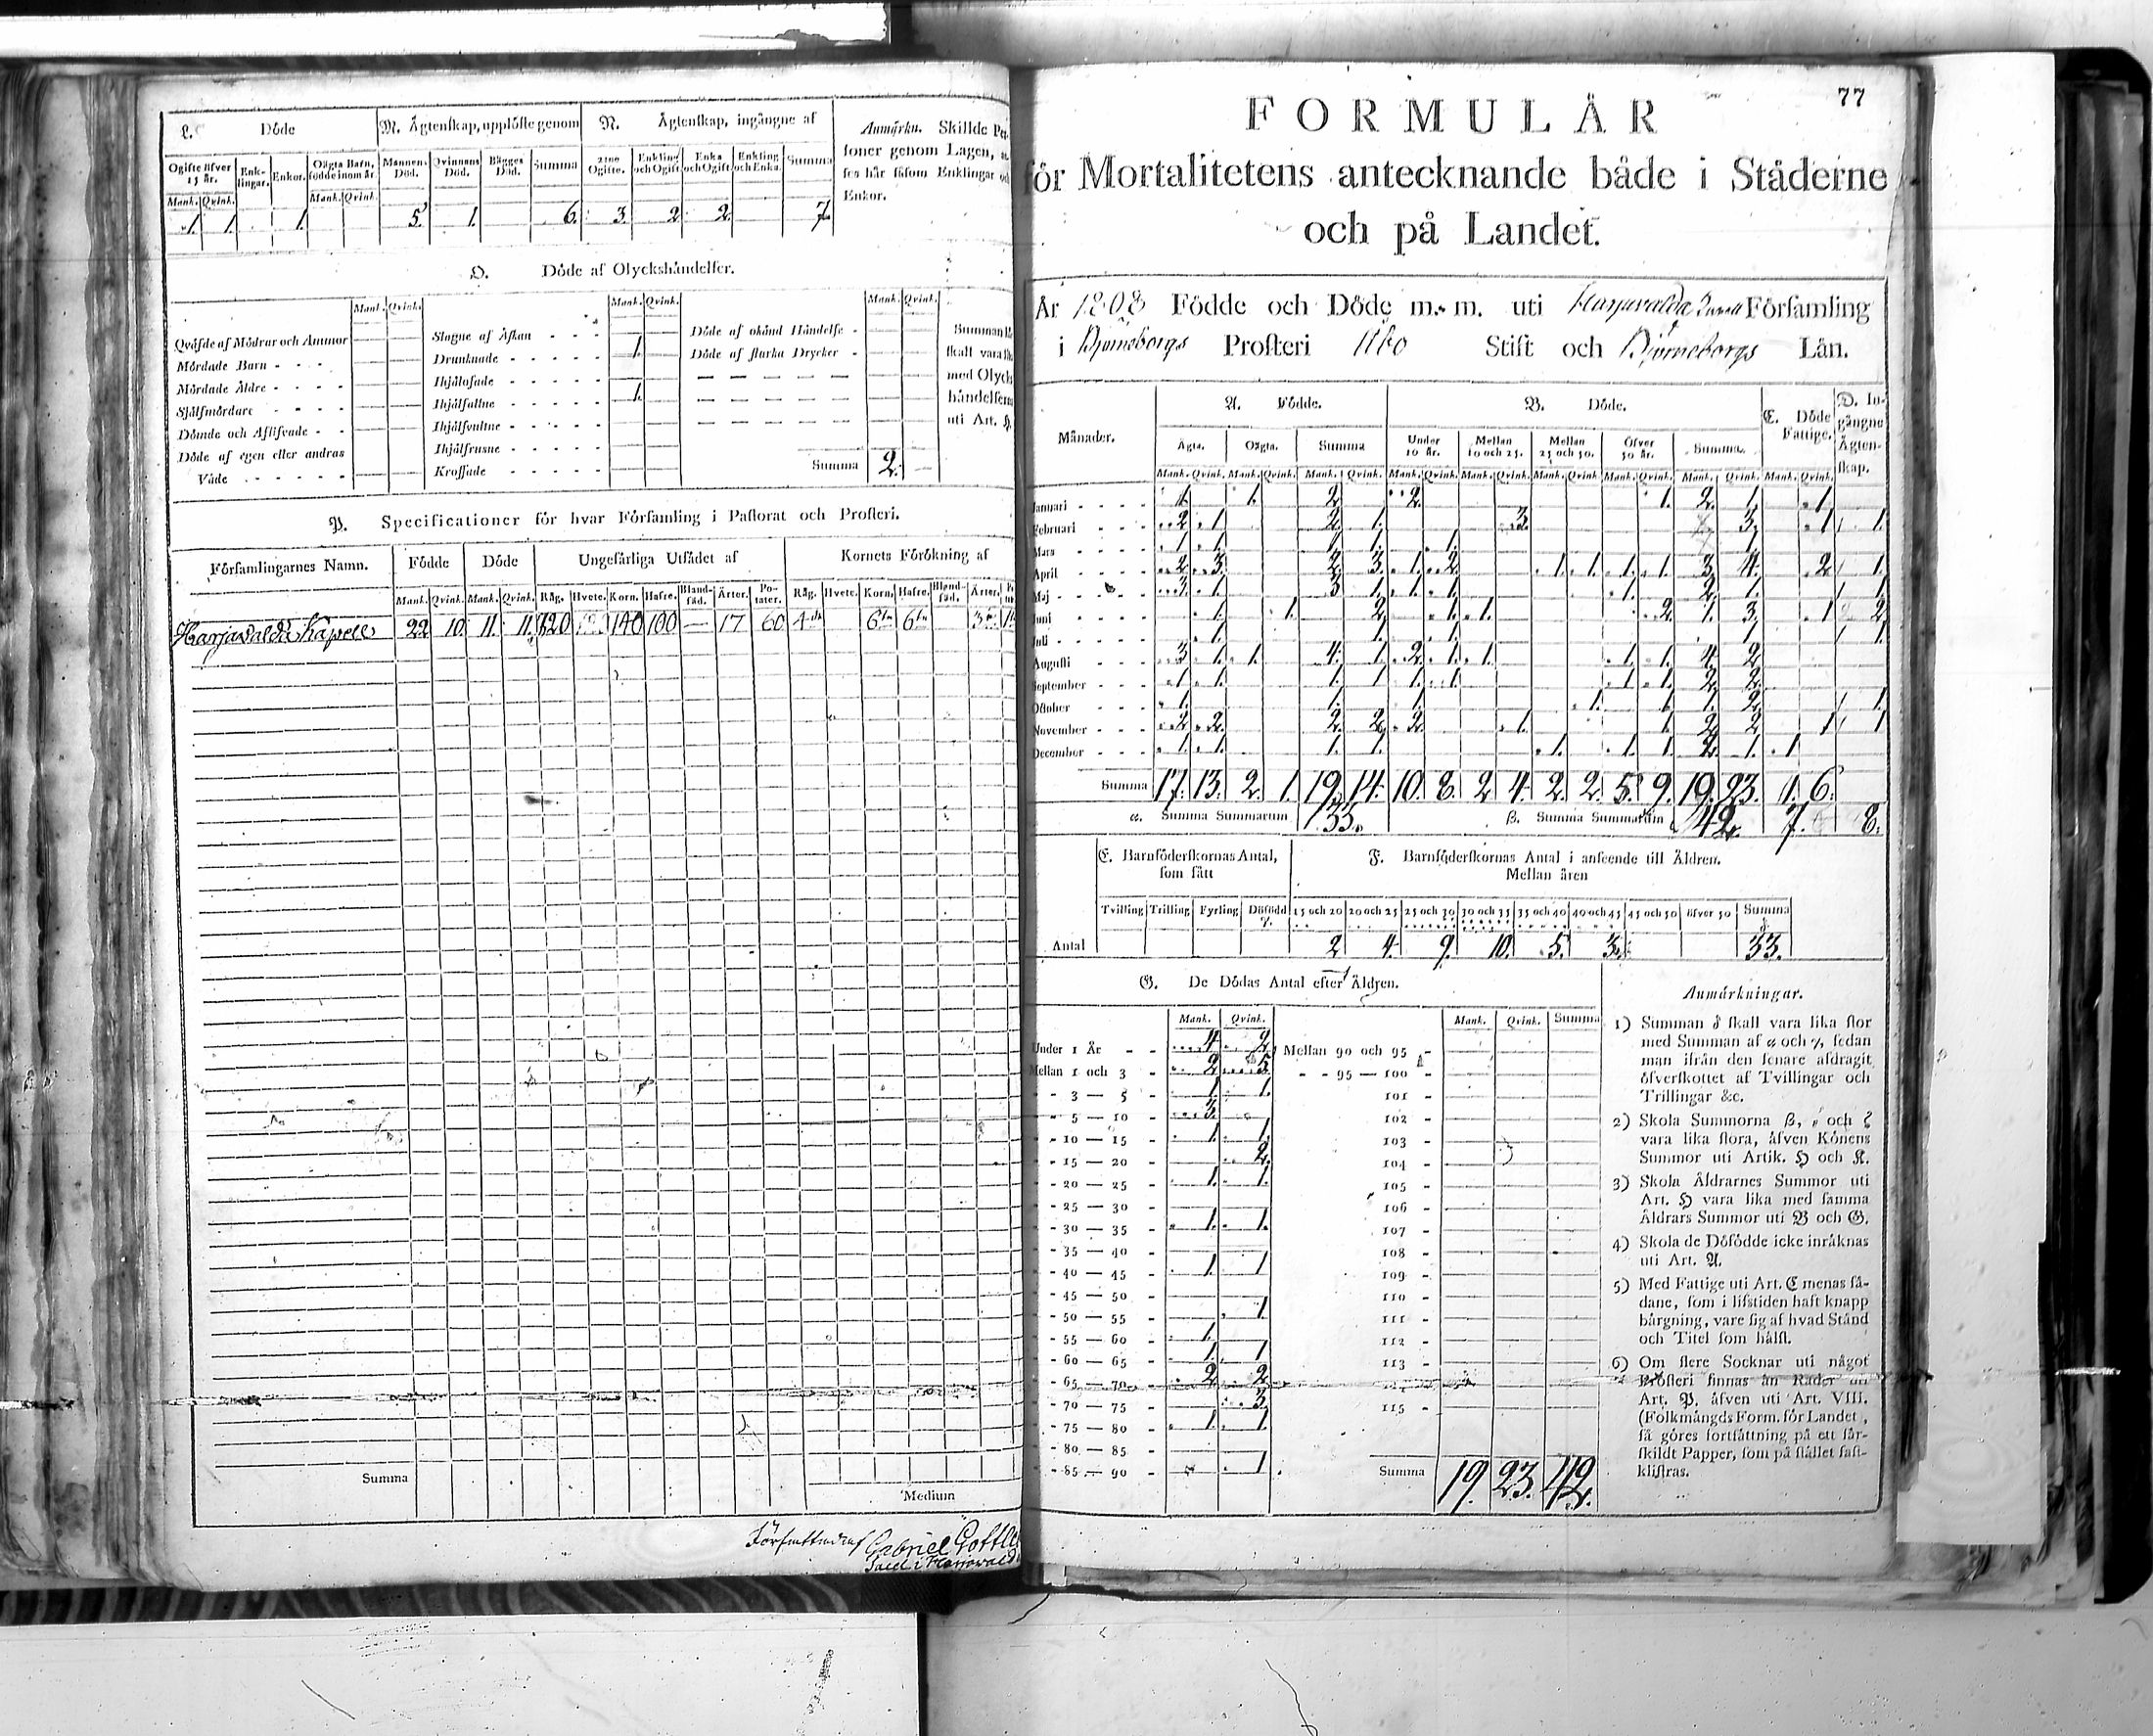 L. Döde
M. Ägtenskap, upplöste genom
N. Ägtenskap, ingångne af
Anmärkn. Skillde Per-
soner genom Lagen,
ses här såsom Enklingar och
Enkor.
Ogifte öfver 15 år. Enk-lingar. Enkor. Oägta Barn, födde inom år. Mannens Död. Qvinnans Död. Bägges Död. Summa 2:ne Ogifte. Enkling och Ogift Enka och Ogift Enkling och Enka. Summa
Mank. Qvink. Mank. Qvink.
1. 1. 1. 5. 1. 6. 3. 2. 2. 7.
O. Döde af Olyckshändelser.
Mank. Qvink. Mank. Qvink. Mank. Qvink.
Qväfde af Mödrar och Ammor
Mördade Barn
Mördade Äldre
Självmördare
Dömde och Aflifvade
Döde af egen eller andras
Våde
Slagne af Åskan
Drunknade 1.
Ihjälosade
Ihjälfallne 1.
Ihjälsvultne
Ihjälfrusne
Krossade
Döde af okänd Händelse
Döde af starka Drycker
Summa 2.
Summan
skall vara
med Olycks
händelserna
uti Art. H.
P. Specificationer för hvar Församling i Pastorat och Prosteri.
Församlingarnes Namn. Födde Döde Ungefärliga Utsädet af Kornets Förökning af
Mank. Qvink. Mank. Qvink. Råg. Hvete. Korn. Hafre. Bland-säd. Ärter. Po-tater. Råg. Hvete. Korn. Hafre. Bland-säd. Ärter.
Harjawalda Kapell 22 10. 11. 11. 120 140 100 — 17 60
Summa
Medium
Författad af Gabriel
77
FORMULÄR
för Mortalitetens antecknande både i Städerne
och på Landet.
År 1808 Födde och Döde m. m. uti Harjawalda Församling
i Björneborgs Prosteri Åbo Stift och Björneborgs Län.
Månader. A. Födde. B. Döde. C. Döde Fattige. D. In-gångne Ägten-skap.
Ägta. Oägta. Summa Under 10 år. Mellan 10 och 25. Mellan 25 och 50. Öfver 50 år. Summa.
Mank. Qvink. Mank. Qvink. Mank. Qvink. Mank. Qvink. Mank. Qvink. Mank. Qvink. Mank. Qvink. Mank. Qvink. Mank. Qvink.
Januari 1. 1. 2. 2. 1. 2. 1. 1.
Februari 2. 1. 2. 1. 3. 3. 1. 1.
Mars 1. 1. 1. 1. 1. 1.
April 2. 3. 2. 3. 1. 2. 1. 1. 1. 1. 3. 4. 2. 1.
Maj 3. 1. 3. 1. 1. 1. 1. 2. 1. 1.
Juni 1. 1. 2. 1. 1. 2. 1. 3. 1. 2.
Juli 1. 1. 1. 1. 1.
Augusti 3. 1. 1. 4. 1. 2. 1. 1. 1. 1. 4. 2.
September 1. 1. 1. 1. 1. 1. 1. 1. 2. 2.
Oktober 1. 1. 1. 1. 1. 1. 2. 1.
November 2. 2. 2. 2. 2. 1. 1. 2. 2. 1. 1.
December 1. 1. 1. 1. 1. 1. 1. 2. 1. 1.
Summa 17. 13. 2. 1. 19. 14. 10. 8. 2. 4. 2. 2. 5. 9. 19. 23. 1. 6.
α. Summa Summarum 33. β. Summa Summarum 42. 7. 8.
E. Barnföderskornas Antal, som fått
F. Barnföderskornas Antal i anseende till Åldren.
Mellan åren
Tvilling Trilling Fyrling Dödfödd 15 och 20 20 och 25 25 och 30 30 och 35 35 och 40 40 och 45 45 och 50 öfver 50 Summa
Antal 2 4. 9. 10. 5. 3. 33.
G. De Dödas Antal efter Åldren.
Mank. Qvink. Mank. Qvink. Summa
Under 1 År 4. 2. Mellan 90 och 95
Mellan 1 och 3 2. 5. 95 — 100
3 — 5 1. 1. 101
5 — 10 3. 102
10 — 15 1. 1. 103
15 — 20 2. 104
20 — 25 1. 1. 105
25 — 30 106
30 — 35 1. 1. 107
35 — 40 108
40 — 45 1. 1 109
45 — 50 110
50 — 55 1 111
55 — 60 1. 112
60 — 65 1. 1 113
65 — 70 2. 2
70 — 75 3. 115
75 — 80 1. 1.
80 — 85
85 — 90 1. Summa 19. 23. 42.
Anmärkningar.
1) Summan δ skall vara lika stor
med Summan af α och γ, sedan
man ifrån den senare afdragit
öfverskottet af Tvillingar och
Trillingar &c.
2) Skola Summorna β, ε och ζ
vara lika stora, äfven Könens
Summor uti Artik. H och K.
3) Skola Åldrarnes Summor uti
Art. H vara lika med samma
Åldrars Summor uti B och G.
4) Skola de Döfödde icke inräknas
uti Art. A.
5) Med Fattige uti Art. C menas så-
dane, som i lifstiden haft knapp
bärgning, vare sig af hvad Stånd
och Titel som hälst.
6) Om flere Socknar uti något
Prosteri finnas än Rader uti
Art. P. äfven uti Art. VIII.
(Folkmängds Form. för Landet,
så göres fortsättning på ett sär-
skildt Papper, som på stället fast-
klistras.